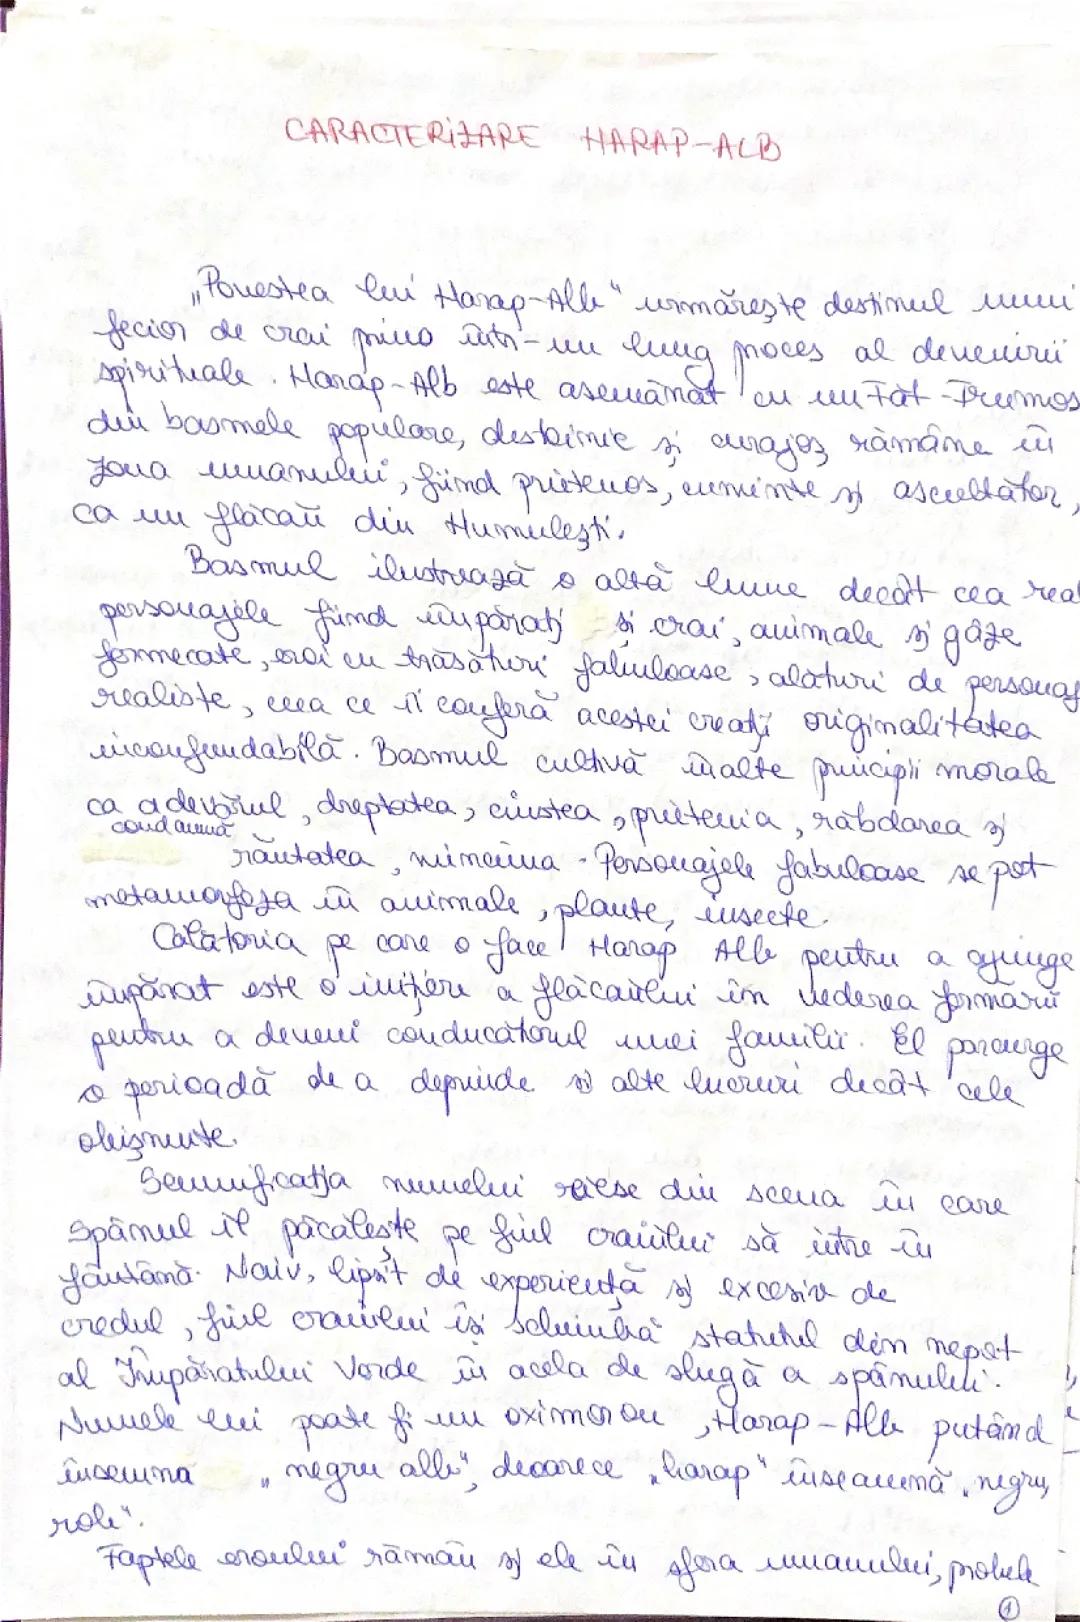 CARACTERIZARE HARAP-ALB
„Povestea lui Harap-Alb" urmărește destinul unui
fecior de crai prins într-un lung proces al devenirii
spirituale. Harap-Alb este asemănat cu un Făt-Frumos
din basmele populare, destoinic și curajos, rămâne în
zona umanului, fiind prietenos, cuminte și ascultător,
ca un flăcău din Humulești.
Basmul ilustrează o altă lume decât cea real
personajele fiind împărați și crai, animale și gâze
fermecate, eroi cu trăsături fabuloase, alături de personaj
realiste, ceea ce îi conferă acestei creații originalitatea
inconfundabilă. Basmul cultivă înalte principii morale
ca adevărul, dreptatea, cinstea, prietenia, răbdarea și
condamnă
răutatea, minciuna. Personajele fabuloase se pot
metamorfoza în animale, plante, insecte.
Călătoria pe care o face Harap Alb pentru a ajunge
împărat este o inițiere a flăcăului în vederea formării
pentru a deveni conducătorul unei familii. El parcurge
o perioadă de a deprinde și alte lucruri decât cele
obișnuite.
Semnificația numelui reiese din scena în care
Spânul îl păcălește pe fiul craiului să intre în
fântână. Naiv, lipsit de experiență și excesiv de
credul, fiul craiului își schimbă statutul din nepot
al Împăratului Verde în acela de slugă a spânului.
Numele lui poate fi un oximoron, Harap-Alb putând
însemna „negru alb", deoarece „harap" înseamnă „negru,
rob".
Faptele eroului rămân și ele în sfera umanului, probele
1